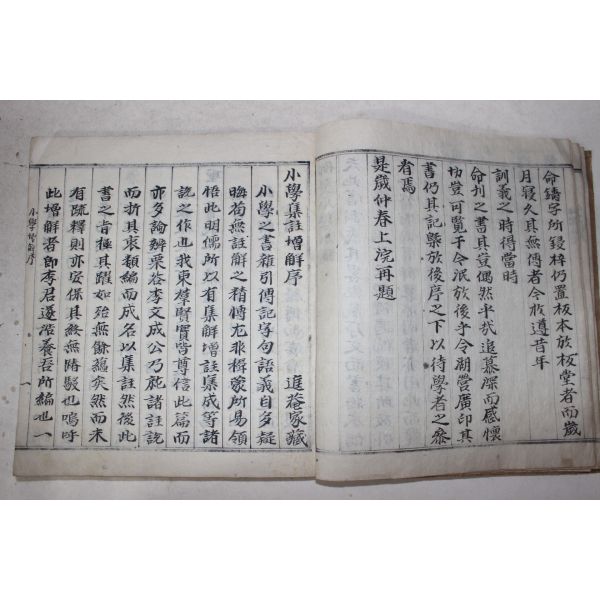 命鑄字所鋟梓仍置板本於板堂者而歲
月寖久其無傳者今於遵昔年
訓義之時得當時
命刊之書其豈偶然乎哉追慕際而感懷
切豈可覽于今泯於後乎令湖營廣印其
書仍其記槩於後序之下以待學者之參
看焉
是歲仲春上浣再題
小學集註增解序
小學之書雜引傳記字句語義自多疑
晦苟無註解之精博尤非樨蒙所易領
悟此明儒所以有集解增註集成等諸
說之作也我東羣賢實皆尊信此篇而
亦多論辨栗谷李文成公乃就諸註說
而折其衷類編而成名以集註然後此
書之旨極其躍如殆無餘蘊矣然而末
有疏釋則亦安保其終無陏駁也嗚呼
此增解者即李君遂浩養吾所編也一
小學增解序
一